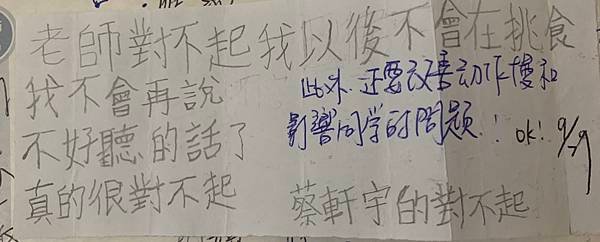 老師對不起我以後不會在挑食
我不會再說
不好聽的話了
真的很對不起
此外.还要改善动作慢和
影響同学的問題.!
OK! 9/29
蔡軒宇的對不起